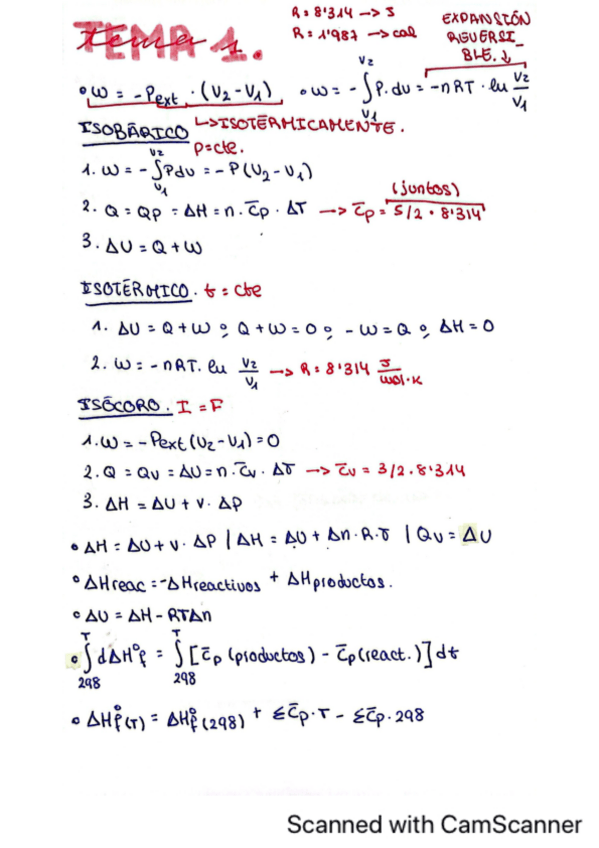 TEMA 1.
R = 8'314 --> J
R = 1'987 --> cal
EXPANSIÓN
REVERSI_
BLE. ↓
• W = - Pext · (V2 - V1) • W = - ∫V1V2 P. dv = -nRT · ln V2/V1
↳ ISOTÉRMICAMENTE.
ISOBÁRICO P=cte.
1. W = - ∫V1V2 Pdv = - P(V2 - V1)
(juntos)
2. Q = QP = ΔH = n · C̄p · ΔT --> C̄p = 5/2 · 8'314
3. ΔU = Q + W
ISOTÉRMICO. t = cte
1. ΔU = Q + W ; Q + W = 0 ; - W = Q ; ΔH = 0
2. W = - nRT. ln V2/V1 --> R = 8'314 J/mol·K
ISÓCORO. I = F
1. W = - Pext (V2 - V1) = 0
2. Q = QV = ΔU = n · C̄v · ΔT --> C̄v = 3/2 . 8'314
3. ΔH = ΔU + V · ΔP
• ΔH = ΔU + V · ΔP | ΔH = ΔU + Δn · R · T | QV = ΔU
• ΔHreac = -ΔHreactivos + ΔHproductos.
• ΔU = ΔH - RTΔn
• ∫298T dΔH°f = ∫298T [C̄p (productos) - C̄p (react.)] dt
• ΔH°f(T) = ΔH°f(298) + ΣC̄p · T - ΣC̄p · 298
Scanned with CamScanner